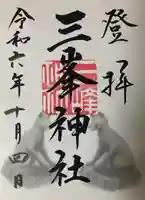 登拝
三峯神社
令和六年十月四日